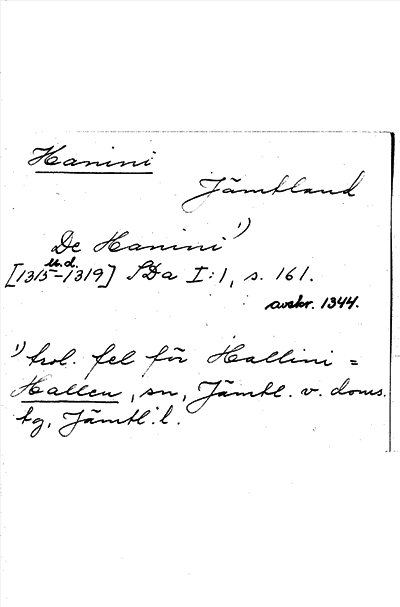 Hanini
Jämtland
De Hanini 1)
u.d.
[1315-1319] SDa I:1, s. 161.
avskr. 1344.
1) trol. fel för Hallini =
Hallen, sn, Jämtl. v. doms.
tg, Jämtl. l.